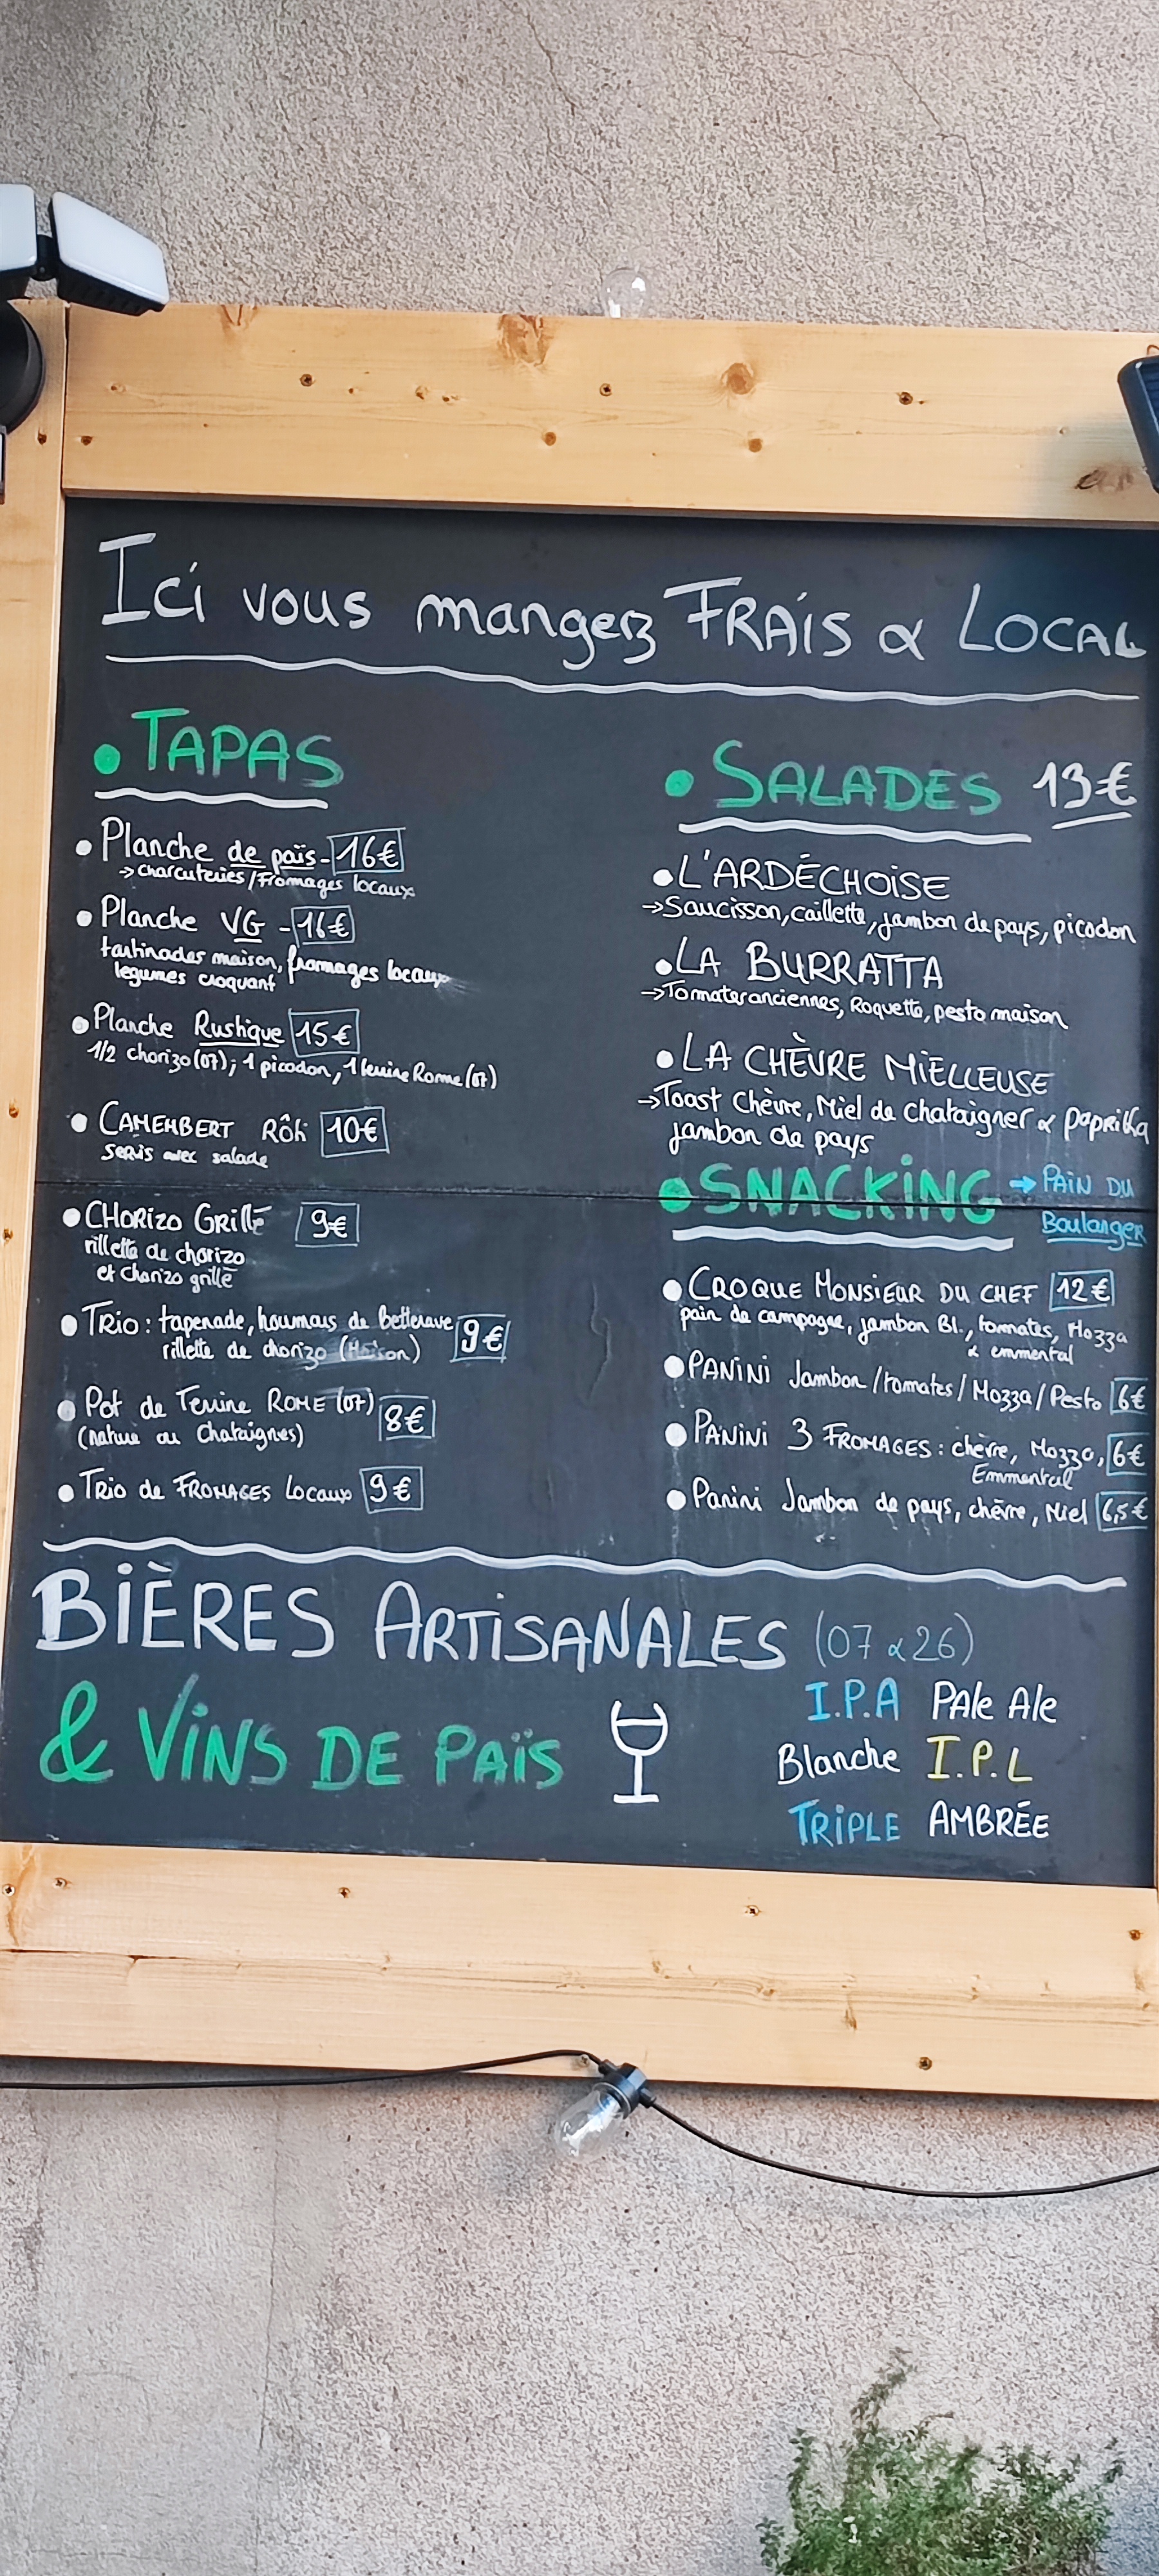 Ici vous mangez FRAIS & LOCAL
• TAPAS
• Planche de païs - 16€
→ charcuteries/Fromages locaux
• Planche VG - 16€
tartinades maison, fromages locaux
legumes croquant
• Planche Rustique 15€
1/2 chorizo (07); 1 picodon, 1 terrine Rome (07)
• CAMEMBERT RÔti 10€
servis avec salade
• CHORIZO GRILLÉ 9€
rillette de chorizo
et chorizo grillé
• TRIO: tapenade, houmous de Betterave 9€
rillette de chorizo (Maison)
• Pot de Terrine ROME (07) 8€
(nature ou Chataignes)
• TRIO de FROMAGES Locaux 9€
• SALADES 13€
• L'ARDÉCHOISE
→ Saucisson, caillette, jambon de pays, picodon
• LA BURRATTA
→ Tomates anciennes, Roquette, pesto maison
• LA CHÈVRE MIELLEUSE
→ Toast Chèvre, Miel de chataigner & paprika
jambon de pays
• SNACKING → PAIN DU
Boulanger
• CROQUE MONSIEUR DU CHEF 12€
pain de campagne, jambon Bl., tomates, Mozza
& emmental
• PANINI Jambon/tomates/Mozza/Pesto 6€
• PANINI 3 FROMAGES: chèvre, Mozza, 6€
Emmental
• Panini Jambon de pays, chèvre, Miel 6,5€
BIÈRES ARTISANALES (07 & 26)
& VINS DE PAÏS
I.P.A PAle Ale
Blanche I.P.L
TRIPLE AMBRÉE